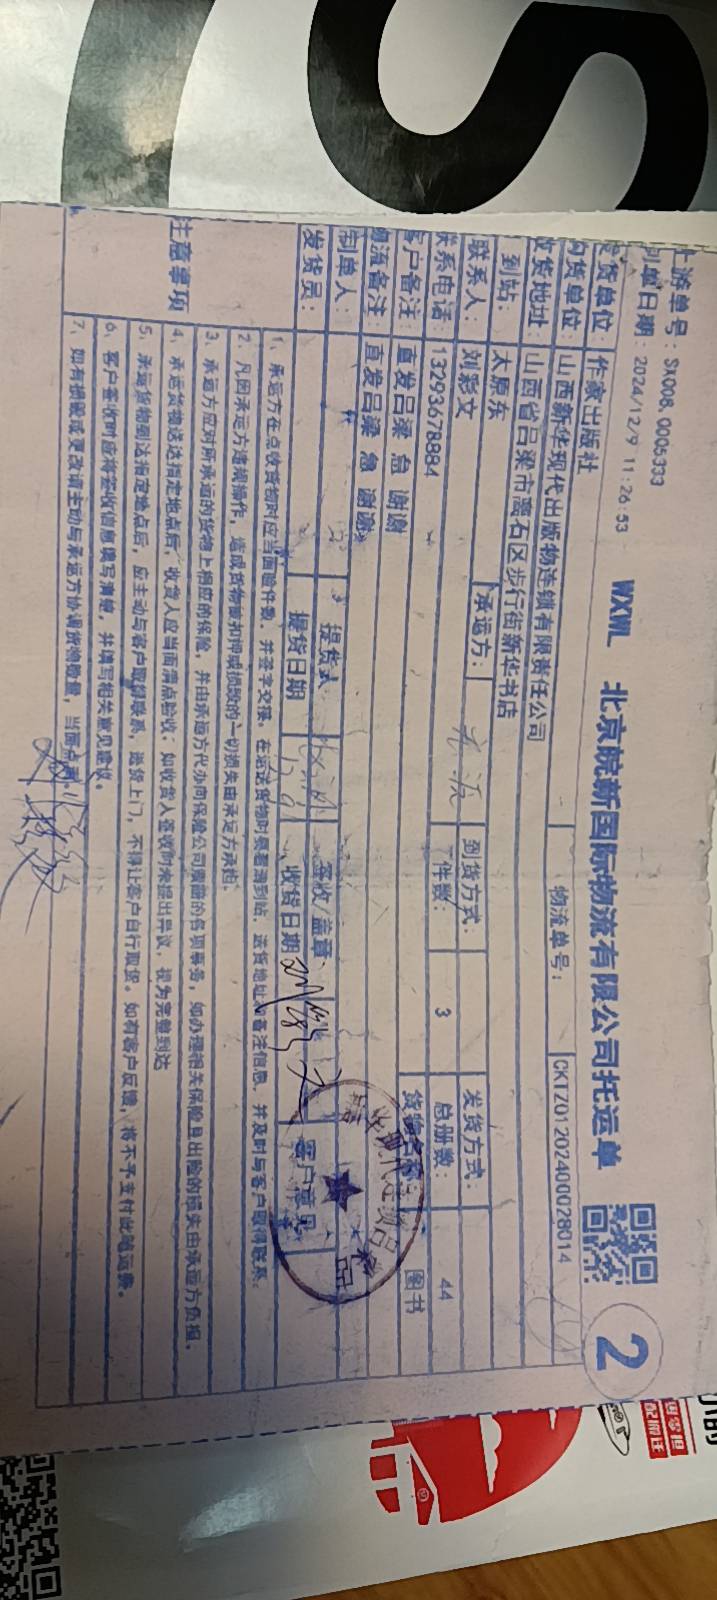 上游单号：SX008.0005333
制单日期：2024/12/9 11:26:53
WXWL 北京皖新国际物流有限公司托运单
2
发货单位：作家出版社
物流单号：CKTZ01202400028014
购货单位：山西新华现代出版物连锁有限责任公司
收货地址：山西省吕梁市离石区步行街新华书店
到站：太原东
联系人：刘彩文 承运方： 到货方式： 发货方式：
联系电话：13293678884 件数：3 总册数：44
客户备注：直发吕梁 急 谢谢 货物名称：图书
物流备注：直发吕梁 急 谢谢
制单人： 提货式 签收/盖章：
发货员： 提货日期 收货日期 客户意见
注意事项
1、承运方在点收货物时应当面验件数，并签字交接。在运送货物时要看清到站、送货地址及备注信息，并及时与客户取得联系。
2、凡因承运方违规操作，造成货物被扣押或损毁的一切损失由承运方承担。
3、承运方应对所承运的货物上相应的保险，并由承运方代办向保险公司索赔的各项事务，如办理相关保险且出险的损失由承运方负担。
4、承运货物送达指定地点后，收货人应当面清点验收；如收货人签收时未提出异议，视为完整到达
5、承运货物到达指定地点后，应主动与客户取得联系，送货上门，不得让客户自行取货。如有客户反馈，将不予支付此趟运费。
6、客户签收时应将签收信息填写清楚，并填写相关意见建议。
7、如有损毁或更改请主动与承运方协调货物数量，当面点清。